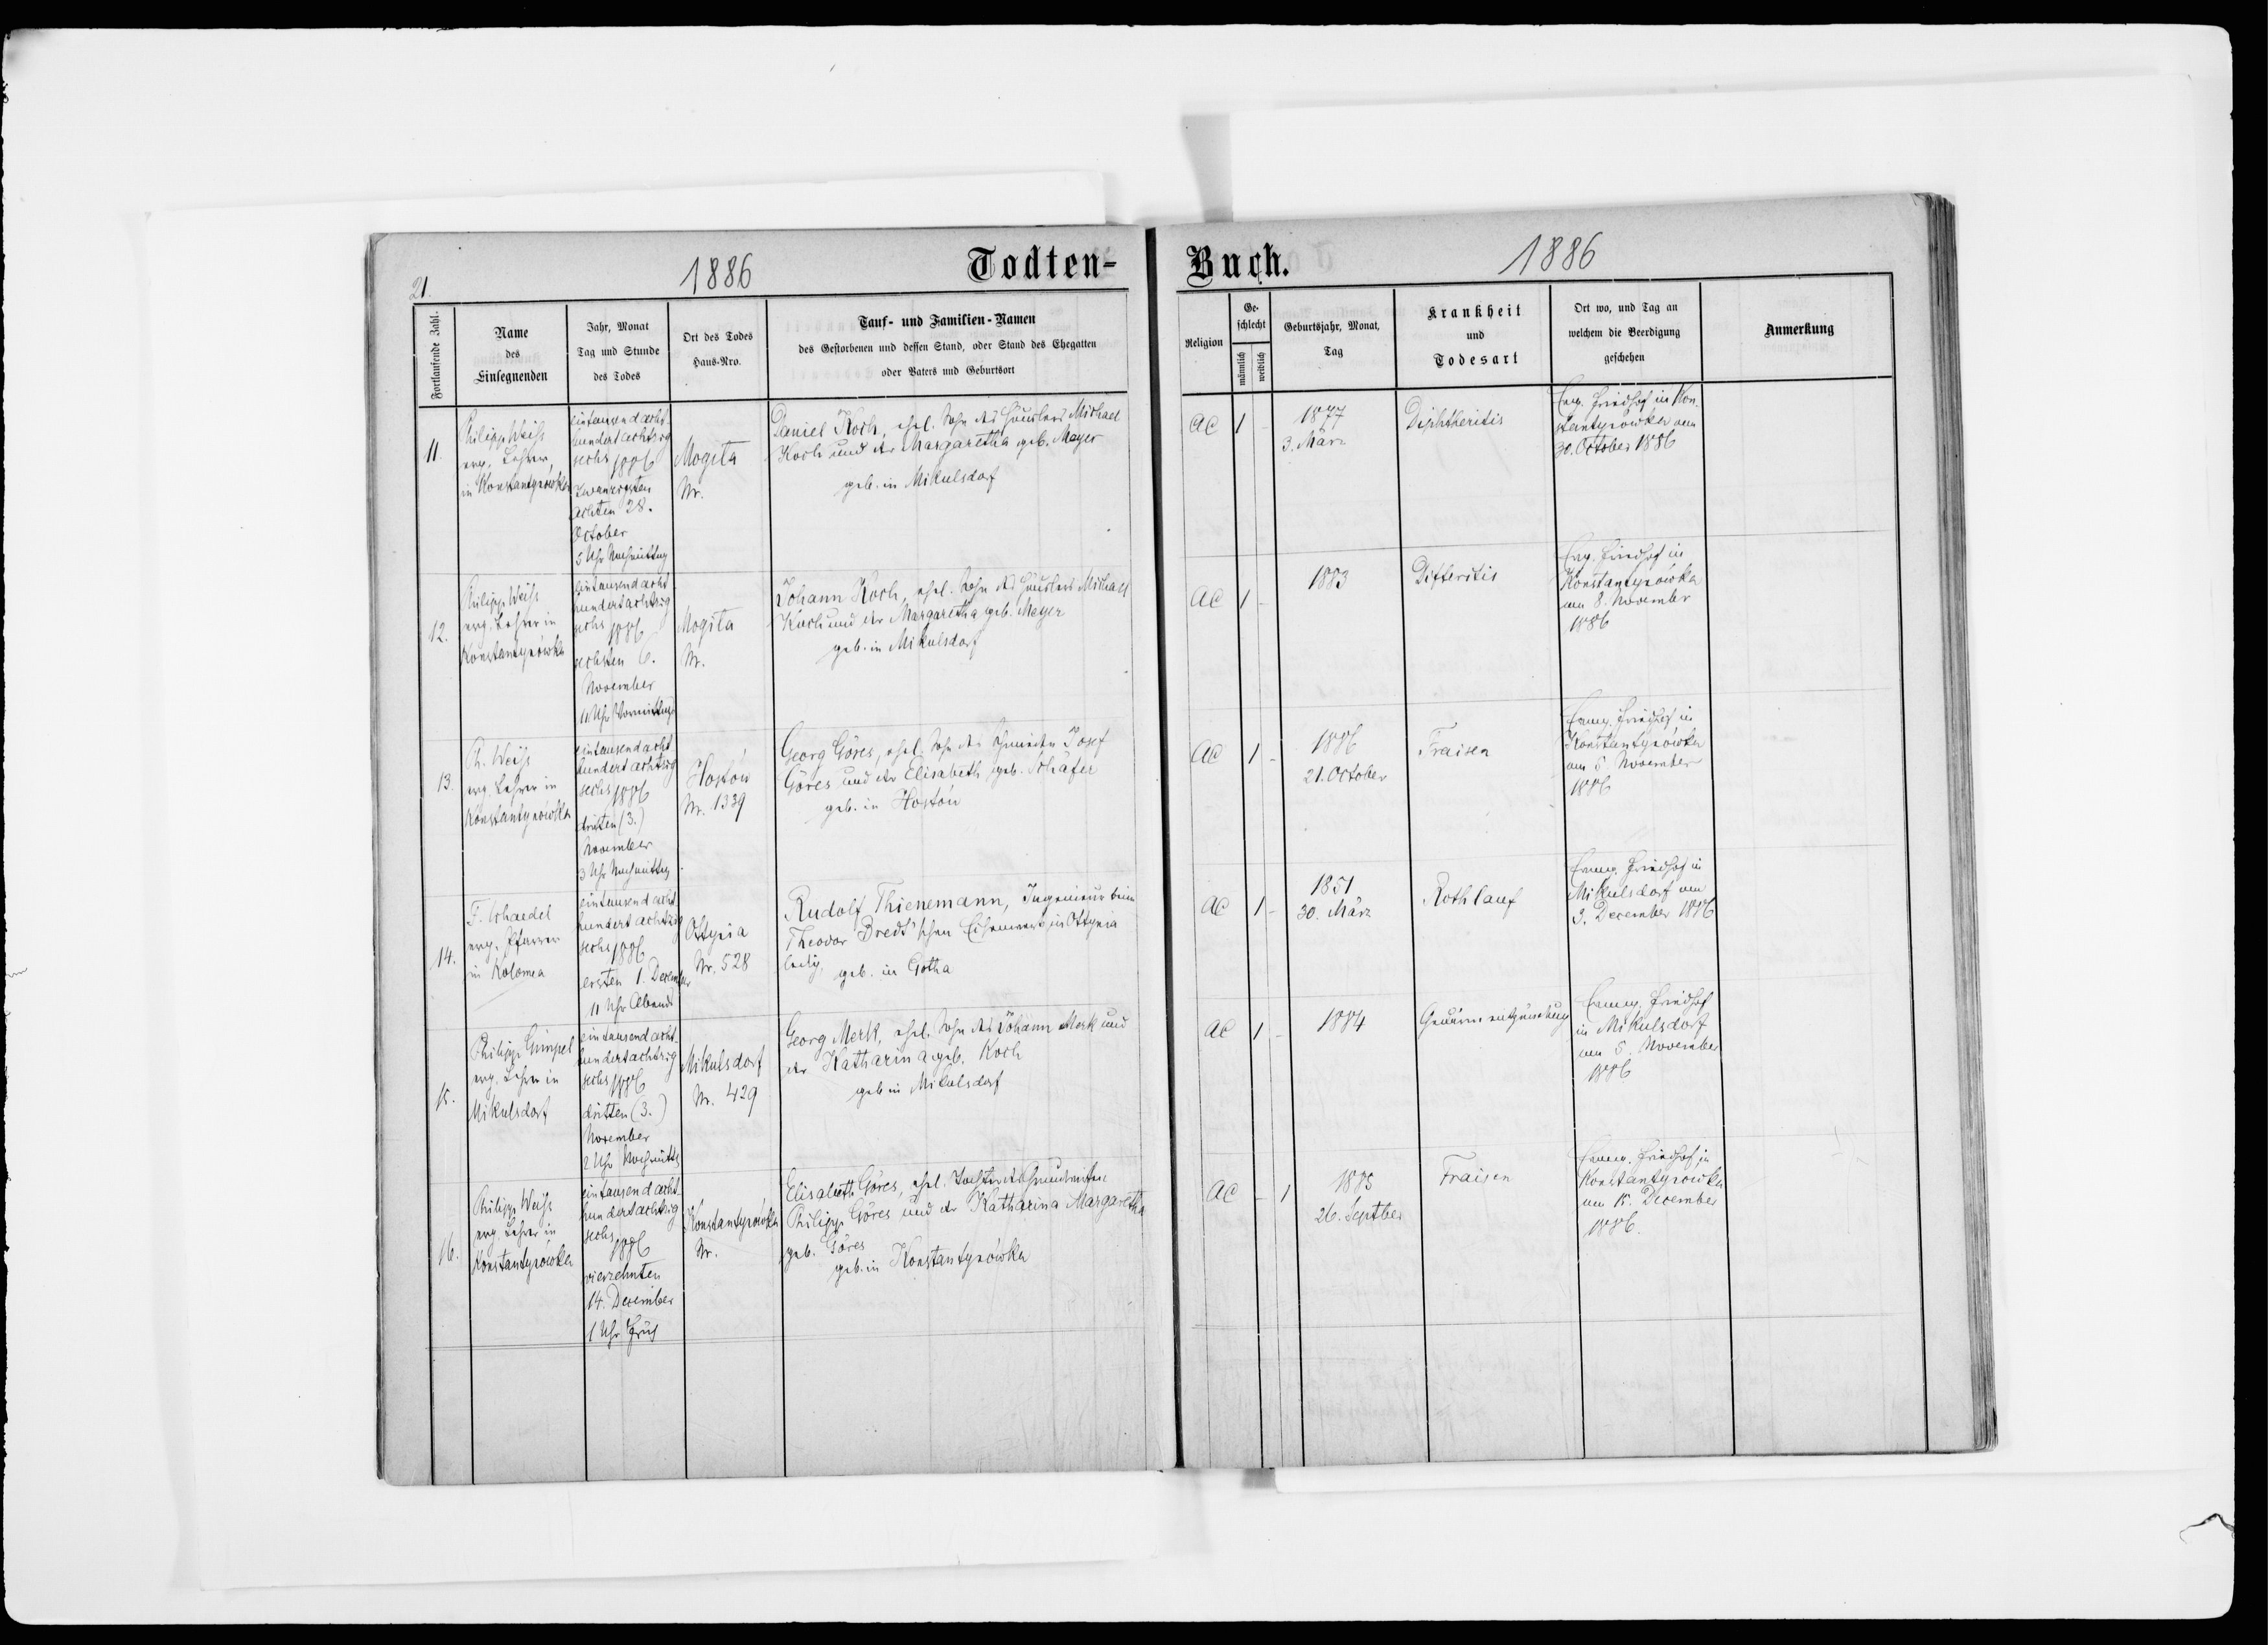 21.
1886
Todten-
Fortlaufende Zahl.
Name
des
Einsegnenden
Jahr, Monat
Tag und Stunde
des Todes
Ort des Todes
Haus-Nro.
Tauf- und Familien-Namen
des Gestorbenen und dessen Stand, oder Stand des Ehegatten
oder Vaters und Geburtsort
11.
Philipp Weiss
evg. Lehrer,
in Konstantynówka
eintausend acht-
hundert achtzig
sechs 1886
zwanzigsten
achten 28.
October
5 Uhr Nachmittag
Mogiła
Nr.
Daniel Koch, ehel. Sohn des Häuslers Michael
Koch und der Margaretha geb. Mayer
geb. in Mikulsdorf
12.
Philipp Weiss
evg. Lehrer in
Konstantynówka
eintausend acht
hundert achtzig
sechs 1886
sechsten 6.
November
11 Uhr Vormittags
Mogiła
Nr.
Johann Koch, ehel. Sohn des Häuslers Michael
Koch und der Margaretha geb. Meyer
geb. in Mikulsdorf
13.
Ph. Weiss
evg. Lehrer in
Konstantynówka
eintausend acht
hundert achtzig
sechs 1886
dritten (3.)
November
3 Uhr Nachmittag
Hostów
Nr. 1339
Georg Göres, ehel. Sohn des Josef
Göres und der Elisabeth geb. Schäfer
geb. in Hostów
14.
F.
evg. Pfarrer
in Kolomea
eintausend acht
hundert achtzig
sechs 1886
ersten 1. December
11 Uhr Abends
Ottynia
Nr. 528
Rudolf Thienemann, Ingenieur beim
Theodor Bredt'schen Eisenwerk in Ottynia
ledig, geb. in Gotha
15.
Philipp Gimpel
evg. Lehrer in
Mikulsdorf
eintausend acht-
hundert achtzig
sechs 1886
dritten (3.)
November
2 Uhr Nachmittg
Mikulsdorf
Nr. 429
Georg Merk, ehel. Sohn des Johann Merk und
der Katharina geb. Koch
geb in Mikulsdorf
16.
Philipp Weiss
evg. Lehrer in
Konstantynówka
eintausend acht-
hundert achtzig
sechs
1886
vierzehnten
14. December
1 Uhr Früh
Konstantynówka
Nr.
Elisabeth Göres, ehel. Tochter des Grundwirten
Philipp Göres und der Katharina Margaretha
geb. Göres
geb. in Konstantynówka
Buch.
1886
Religion
Ge-
schlecht
männlich
weiblich
Geburtsjahr, Monat,
Tag
Krankheit
und
Todesart
Ort wo, und Tag an
welchem die Beerdigung
geschehen
Anmerkung
AC
1
-
1877
3. März
Diphtheritis
Evg. Friedhof in Kon-
stantynówka am
30. October 1886
AC
1
-
1883
Difteritis
Evg. Friedhof in
Konstantynówka
am 8. November
1886
AC
1
-
1886
21. October
Fraisen
Evang. Friedhof in
Konstantynówka
am 5. November
1886
AC
1
-
1851
30. März
Rothlauf
Evang. Friedhof in
Mikulsdorf am
3. December 1886
AC
1
-
1884
Evang. Friedhof
in Mikulsdorf
am 5. November
1886
AC
-
1
1885
26. Septber
Fraisen
Evang. Friedhof in
Konstantynowka
am 15. December
1886.